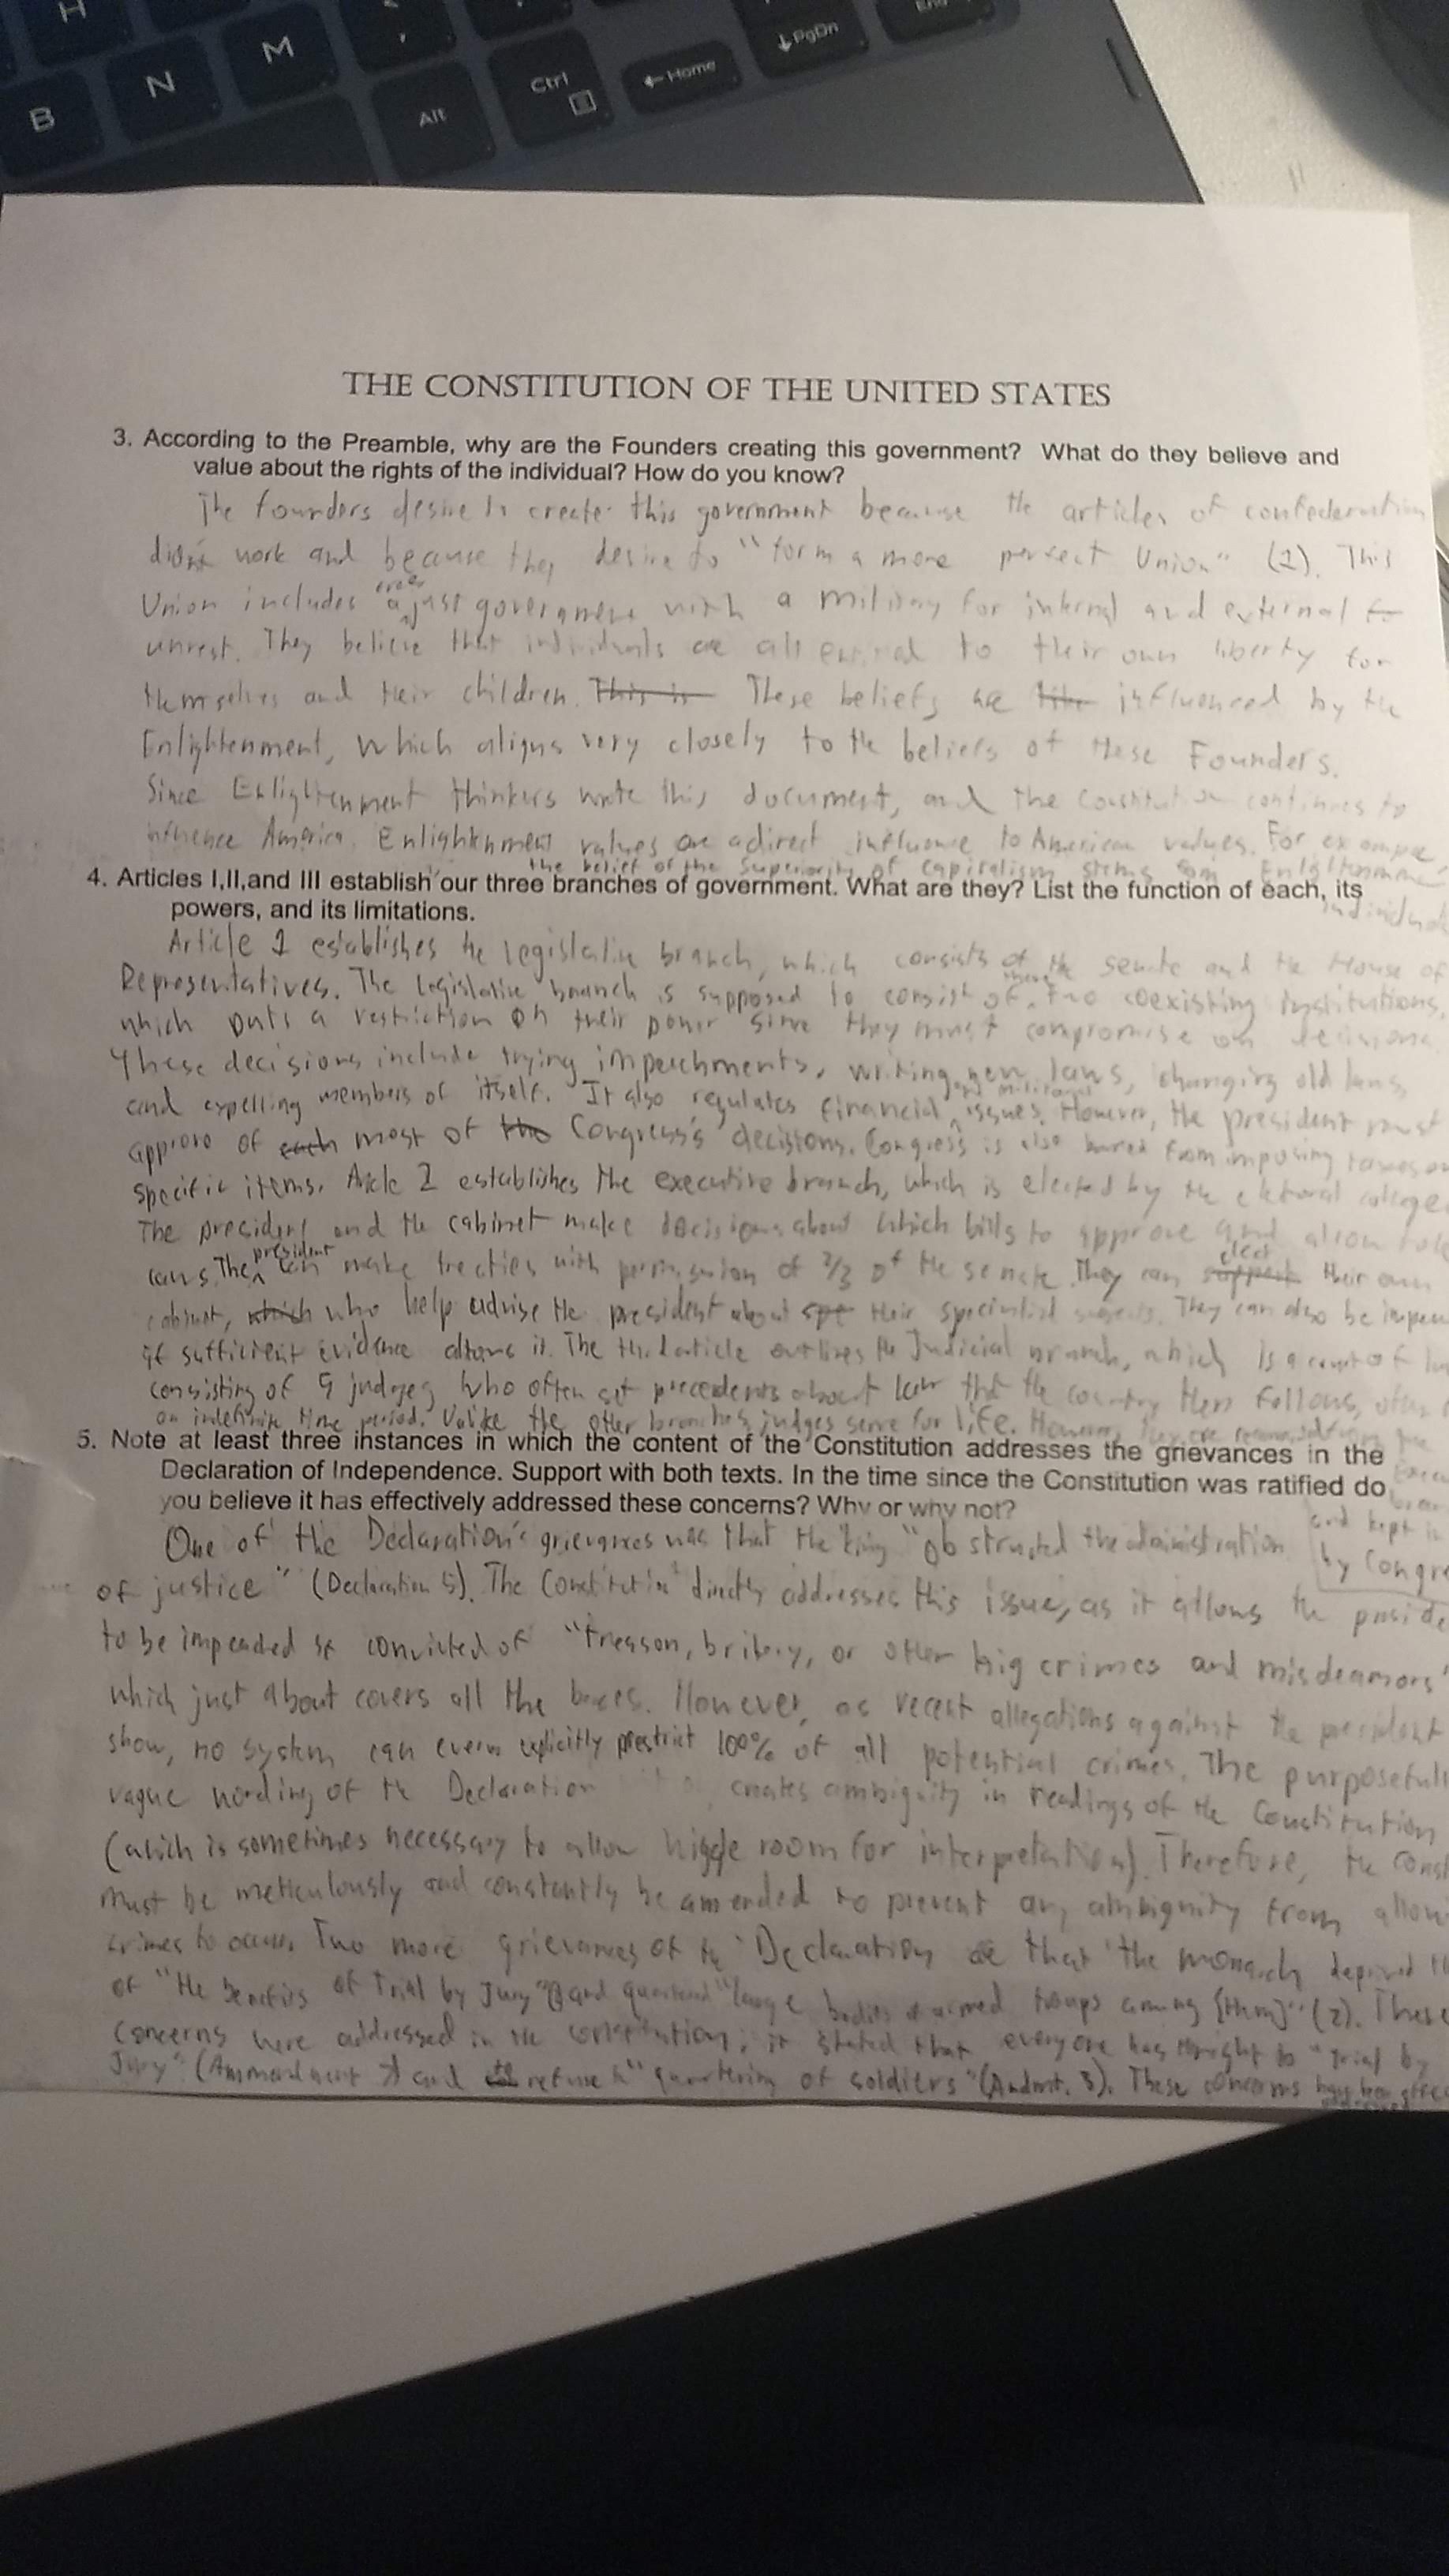 H
B
N
M
Alt
Ctrl
← Home
↓ PgDn
End
THE CONSTITUTION OF THE UNITED STATES
3. According to the Preamble, why are the Founders creating this government? What do they believe and
value about the rights of the individual? How do you know?
The founders desire to create this government because the articles of confederation
didn't work and because they desire to "form a more perfect Union" (1). This
Union includes a just government with a military for internal and external
unrest. They believe that individuals are all to their own liberty for
themselves and their children. This is These beliefs are influenced by the
Enlightenment, which aligns very closely to the beliefs of these Founders.
Since Enlightenment thinkers wrote this document, and the Constitution continues to
influence America, Enlightenment values are a direct influence to American values. For example,
the belief of the superiority of capitalism stems from
4. Articles I,II,and III establish our three branches of government. What are they? List the function of each, its
powers, and its limitations.
Article 1 establishes the legislative branch, which consists of the senate and the House of
Representatives. The legislative branch is supposed to consist of two coexisting institutions,
which puts a restriction on their power since they must compromise on decisions.
These decisions include trying impeachments, writing new laws, changing old laws,
and expelling members of itself. It also regulates financial issues. However, the president must
approve of each most of the Congress's decisions. Congress is also barred from imposing taxes on
specific items. 2 establishes the executive branch, which is elected by the electoral college
The president and the cabinet make decisions about which bills to approve and
laws. The president can make treaties with permission of 2/3 of the senate. They can elect their own
cabinet, which who help advise the president about their specialist. They can also be
if sufficient evidence. The article outlines the Judicial branch, which is a court of
consisting of 9 judges who often set precedents about law that the country then follows, often
an indefinite time period. Unlike the other branches, judges serve for life. However, they are
and kept in
by Congre
5. Note at least three instances in which the content of the Constitution addresses the grievances in the
Declaration of Independence. Support with both texts. In the time since the Constitution was ratified do
you believe it has effectively addressed these concerns? Why or why not?
One of the Declaration's grievances was that the king "obstructed the administration
of justice" (Declaration 5). The Constitution directly addresses this issue, as it allows the preside
to be impeached if convicted of "treason, bribery, or other hig crimes and misdeamors"
which just about covers all the bases. However, as recent allegations against the president
show, no system can even explicitly 100% of all potential crimes. The purposefull
vague wording of the Declaration creates ambiguity in readings of the Constitution
(which is sometimes necessary to allow room for interpretation). Therefore, the Const
must be meticulously and constantly be amended to prevent any ambiguity from allow
crimes to occur. Two more grievances of the Declaration are that the monarch deprived
of "the benefits of Trial by Jury" and quartered "large bodies of armed troops among [them]" (2). These
concerns were addressed in the constitution; it stated that everyone has the right to "trial by
Jury" (Ammendment 7) and refuse "quartering of soldiers" (Admt. 3). These concerns have been